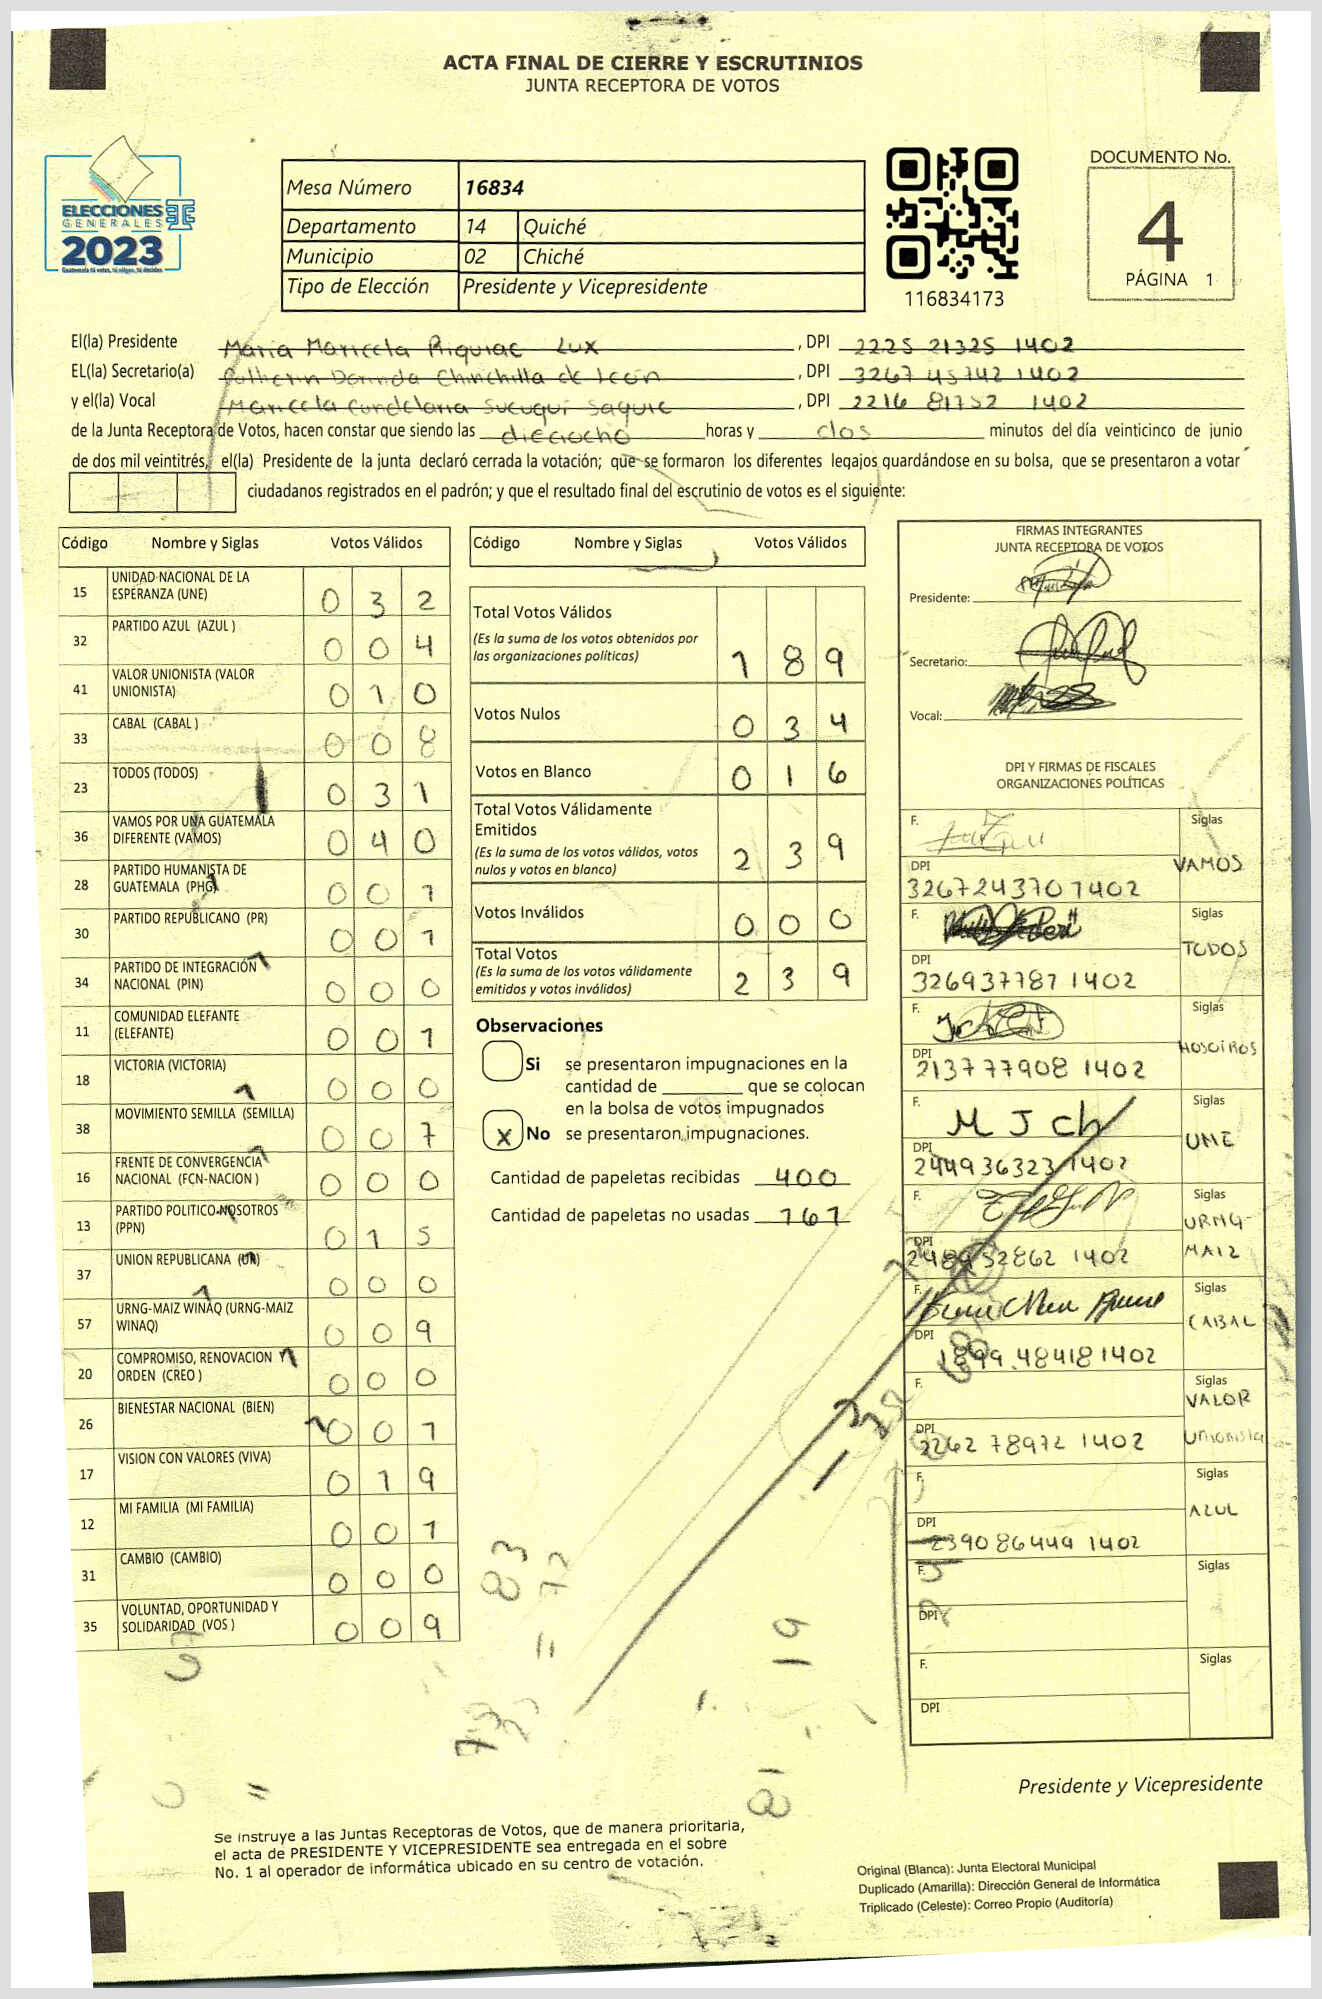 ACTA FINAL DE CIERRE Y ESCRUTINIOS
JUNTA RECEPTORA DE VOTOS
ELECCIONES
GENERALES
2023
Guatemala tú votas, tú eliges, tú decides
Mesa Número 16834
Departamento 14 Quiché
Municipio 02 Chiché
Tipo de Elección Presidente y Vicepresidente
116834173
DOCUMENTO No.
4
PÁGINA 1
El(la) Presidente Maria Maricela Riquiac Lux, DPI 2225 21325 1402
EL(la) Secretario(a) Dorinda Chinchilla de León, DPI 3267 45742 1402
y el(la) Vocal Maricela Candelaria Sucuquí Saquic, DPI 2216 81752 1402
de la Junta Receptora de Votos, hacen constar que siendo las dieciocho horas y dos minutos del día veinticinco de junio
de dos mil veintitrés, el(la) Presidente de la junta declaró cerrada la votación; que se formaron los diferentes legajos guardándose en su bolsa, que se presentaron a votar
ciudadanos registrados en el padrón; y que el resultado final del escrutinio de votos es el siguiente:
Código Nombre y Siglas Votos Válidos
15 UNIDAD NACIONAL DE LA ESPERANZA (UNE) 0 3 2
32 PARTIDO AZUL (AZUL ) 0 0 4
41 VALOR UNIONISTA (VALOR UNIONISTA) 0 1 0
33 CABAL (CABAL ) 0 0 8
23 TODOS (TODOS) 0 3 1
36 VAMOS POR UNA GUATEMALA DIFERENTE (VAMOS) 0 4 0
28 PARTIDO HUMANISTA DE GUATEMALA (PHG) 0 0 1
30 PARTIDO REPUBLICANO (PR) 0 0 1
34 PARTIDO DE INTEGRACIÓN NACIONAL (PIN) 0 0 0
11 COMUNIDAD ELEFANTE (ELEFANTE) 0 0 1
18 VICTORIA (VICTORIA) 0 0 0
38 MOVIMIENTO SEMILLA (SEMILLA) 0 0 7
16 FRENTE DE CONVERGENCIA NACIONAL (FCN-NACION ) 0 0 0
13 PARTIDO POLITICO NOSOTROS (PPN) 0 1 5
37 UNION REPUBLICANA (UR) 0 0 0
57 URNG-MAIZ WINAQ (URNG-MAIZ WINAQ) 0 0 9
20 COMPROMISO, RENOVACION Y ORDEN (CREO ) 0 0 0
26 BIENESTAR NACIONAL (BIEN) 0 0 1
17 VISION CON VALORES (VIVA) 0 1 9
12 MI FAMILIA (MI FAMILIA) 0 0 1
31 CAMBIO (CAMBIO) 0 0 0
35 VOLUNTAD, OPORTUNIDAD Y SOLIDARIDAD (VOS ) 0 0 9
Código Nombre y Siglas Votos Válidos
Total Votos Válidos 1 8 9
(Es la suma de los votos obtenidos por
las organizaciones políticas)
Votos Nulos 0 3 4
Votos en Blanco 0 1 6
Total Votos Válidamente
Emitidos 2 3 9
(Es la suma de los votos válidos, votos
nulos y votos en blanco)
Votos Inválidos 0 0 0
Total Votos 2 3 9
(Es la suma de los votos válidamente
emitidos y votos inválidos)
Observaciones
Si se presentaron impugnaciones en la
cantidad de ________ que se colocan
en la bolsa de votos impugnados
x No se presentaron impugnaciones.
Cantidad de papeletas recibidas 400
Cantidad de papeletas no usadas 161
FIRMAS INTEGRANTES
JUNTA RECEPTORA DE VOTOS
Presidente:
Secretario:
Vocal:
DPI Y FIRMAS DE FISCALES
ORGANIZACIONES POLÍTICAS
F. Siglas VAMOS
DPI 3267243701402
F. Siglas TODOS
DPI 326937787 1402
F. Siglas NOSOTROS
DPI 213777908 1402
F. M J Ch Siglas UNE
DPI 244936323 1402
F. Siglas URNG- MAIZ
DPI 248952862 1402
F. Siglas CABAL
DPI 1899 48418 1402
F. Siglas VALOR Unionista
DPI 2262 78972 1402
F. Siglas AZUL
DPI 239086449 1402
F. Siglas
DPI
F. Siglas
DPI
83
= 72
19
Presidente y Vicepresidente
Se instruye a las Juntas Receptoras de Votos, que de manera prioritaria,
el acta de PRESIDENTE Y VICEPRESIDENTE sea entregada en el sobre
No. 1 al operador de informática ubicado en su centro de votación.
Original (Blanca): Junta Electoral Municipal
Duplicado (Amarilla): Dirección General de Informática
Triplicado (Celeste): Correo Propio (Auditoría)